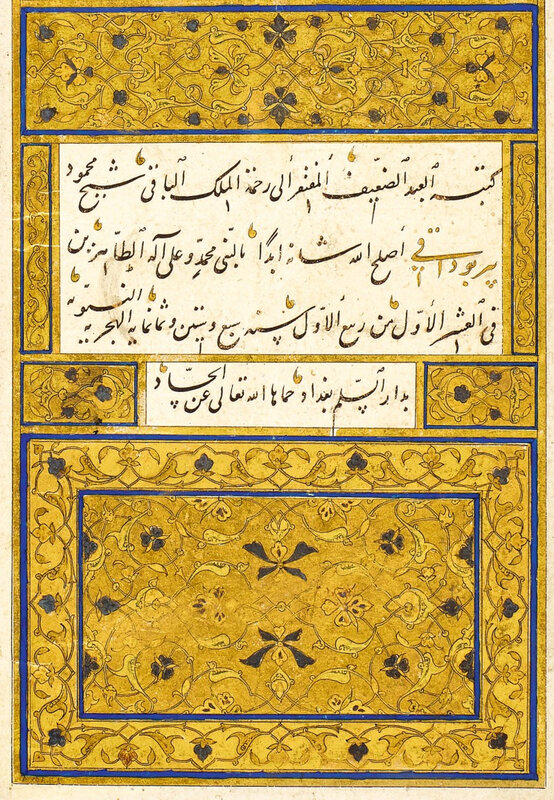 كتبه العبد الضعيف المفتقر الى رحمة الملك الباقى شيخ محمود
پير بوداقى أصلح الله شانه ابدًا بالنبى محمدٍ وعلى آله الطاهرين
فى العشر الاوّل من ربيع الاوّل سنه سبع وستين وثمانمايه الهجريه النبويه
بدار السلم بغداد حماها الله تعالى عن